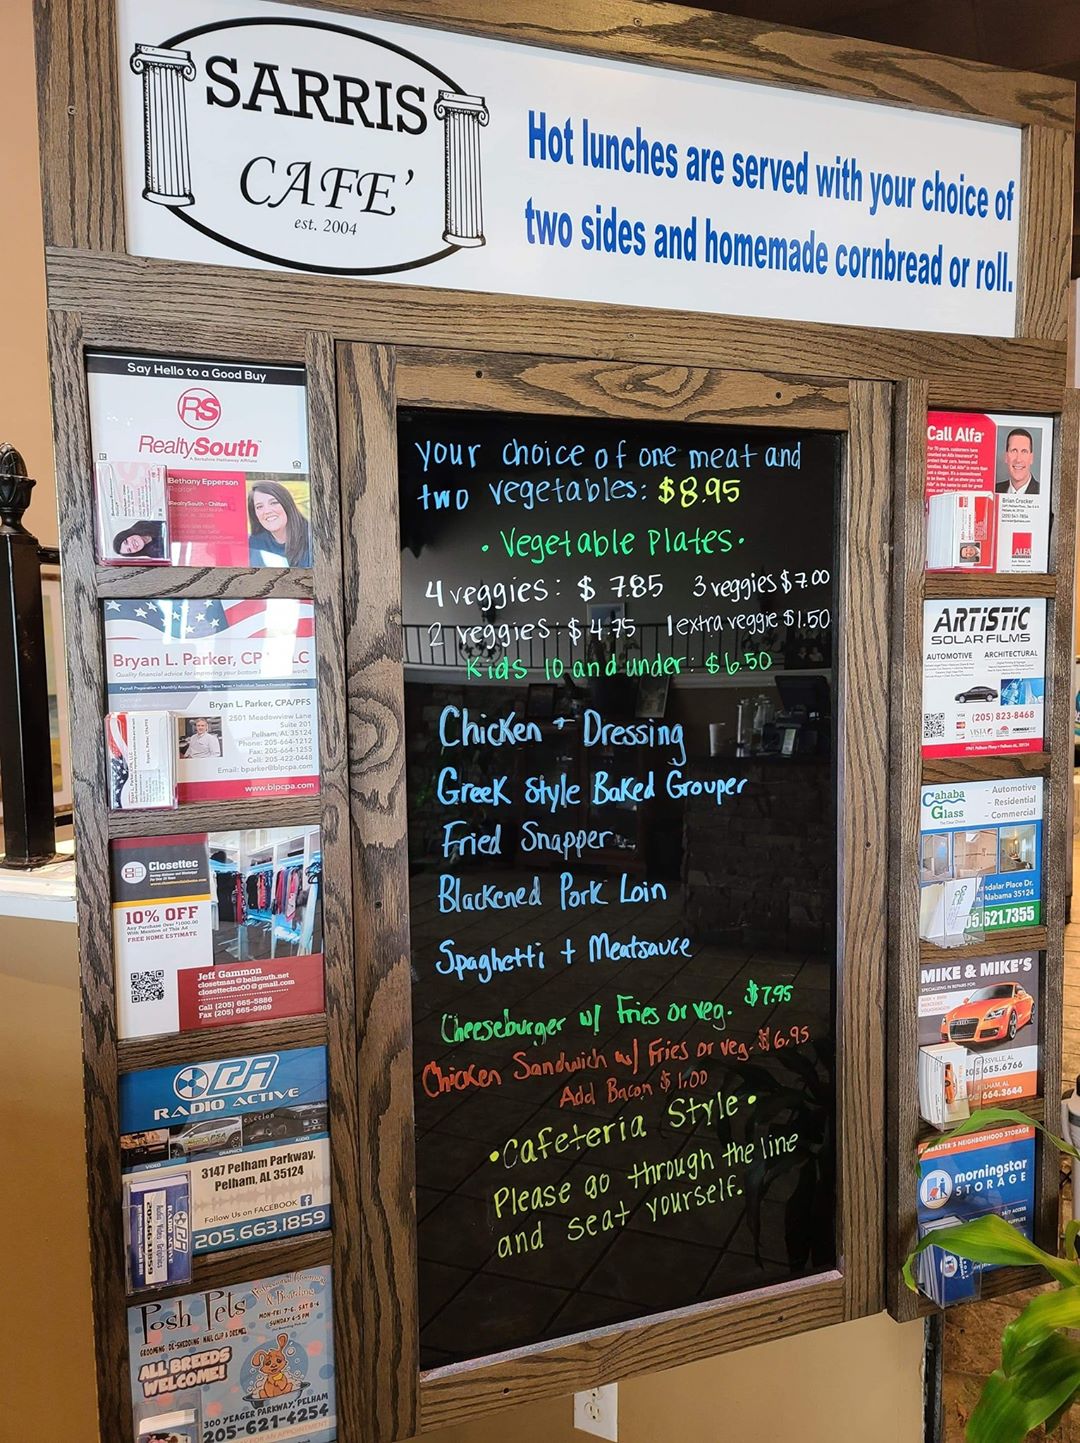 SARRIS
CAFE'
est. 2004
Hot lunches are served with your choice of
two sides and homemade cornbread or roll.
your choice of one meat and
two vegetables: $8.95
• Vegetable Plates •
4 veggies: $ 7.85 3 veggies $7.00
2 veggies: $ 4.75 1 extra veggie $1.50
Kids 10 and under: $6.50
Chicken + Dressing
Greek Style Baked Grouper
Fried Snapper
Blackened Pork Loin
Spaghetti + Meatsauce
Cheeseburger w/ Fries or veg. $7.95
Chicken Sandwich w/ Fries or veg. $6.95
Add Bacon $1.00
• Cafeteria Style •
Please go through the line
and seat yourself.
Say Hello to a Good Buy
RS
RealtySouth
Bethany Epperson
Bryan L. Parker, CP LC
Bryan L. Parker, CPA/PFS
2501 Meadowview Lane
Suite 201
Pelham, AL 35124
Phone: 205-664-1212
Fax: 205-664-1255
Cell: 205-422-0448
Email: bparker@blpcpa.com
www.blpcpa.com
Closettec
10% OFF
Any Purchase Over $1000.00
With Mention of This Ad
FREE HOME ESTIMATE
Jeff Gammon
closetman@bellsouth.net
closettecinc00@gmail.com
Call (205) 665-5886
Fax (205) 665-9969
RADIO ACTIVE
VIDEO GRAPHICS AUDIO
3147 Pelham Parkway,
Pelham, AL 35124
Follow Us on FACEBOOK
205.663.1859
Posh Pets
MON-FRI 7-6, SAT 8-4
SUNDAY 4-5 PM
GROOMING DE-SHEDDING NAIL CLIP & DREMEL
ALL BREEDS
WELCOME!
300 YEAGER PARKWAY, PELHAM
205-621-4254
Call Alfa
Brian Cracker
ALFA
ARTISTIC
SOLAR FILMS
AUTOMOTIVE ARCHITECTURAL
(205) 823-8468
VISTA
Cahaba
Glass
- Automotive
- Residential
- Commercial
andalar Place Dr.
, Alabama 35124
05.621.7355
MIKE & MIKE'S
SPECIALIZING IN REPAIRS FOR:
SSVILLE, AL
205 655.6766
LHAM, AL
664.3644
ASTER'S NEIGHBORHOOD STORAGE
morningstar
STORAGE
24/7 ACCESS